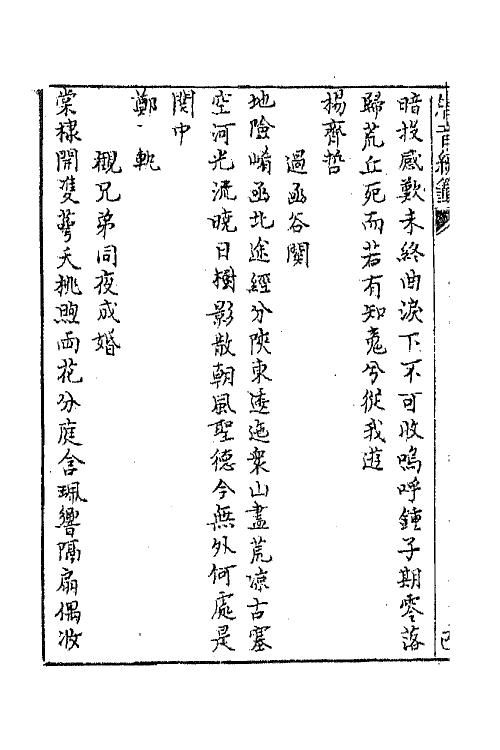 暗投感歎未終曲淚下不可收嗚呼鍾子期零落
歸荒丘死而若有知魂兮從我遊
楊齊哲
過函谷關
地險崤函北途經分陝東逶迤衆山盡荒凉古塞
空河光流曉日樹影散朝風聖德今無外何處是
関中
鄭軌
觀兄弟同夜成婚
棠棣開雙萼夭桃煦両花分庭含珮響隔扇偶妝